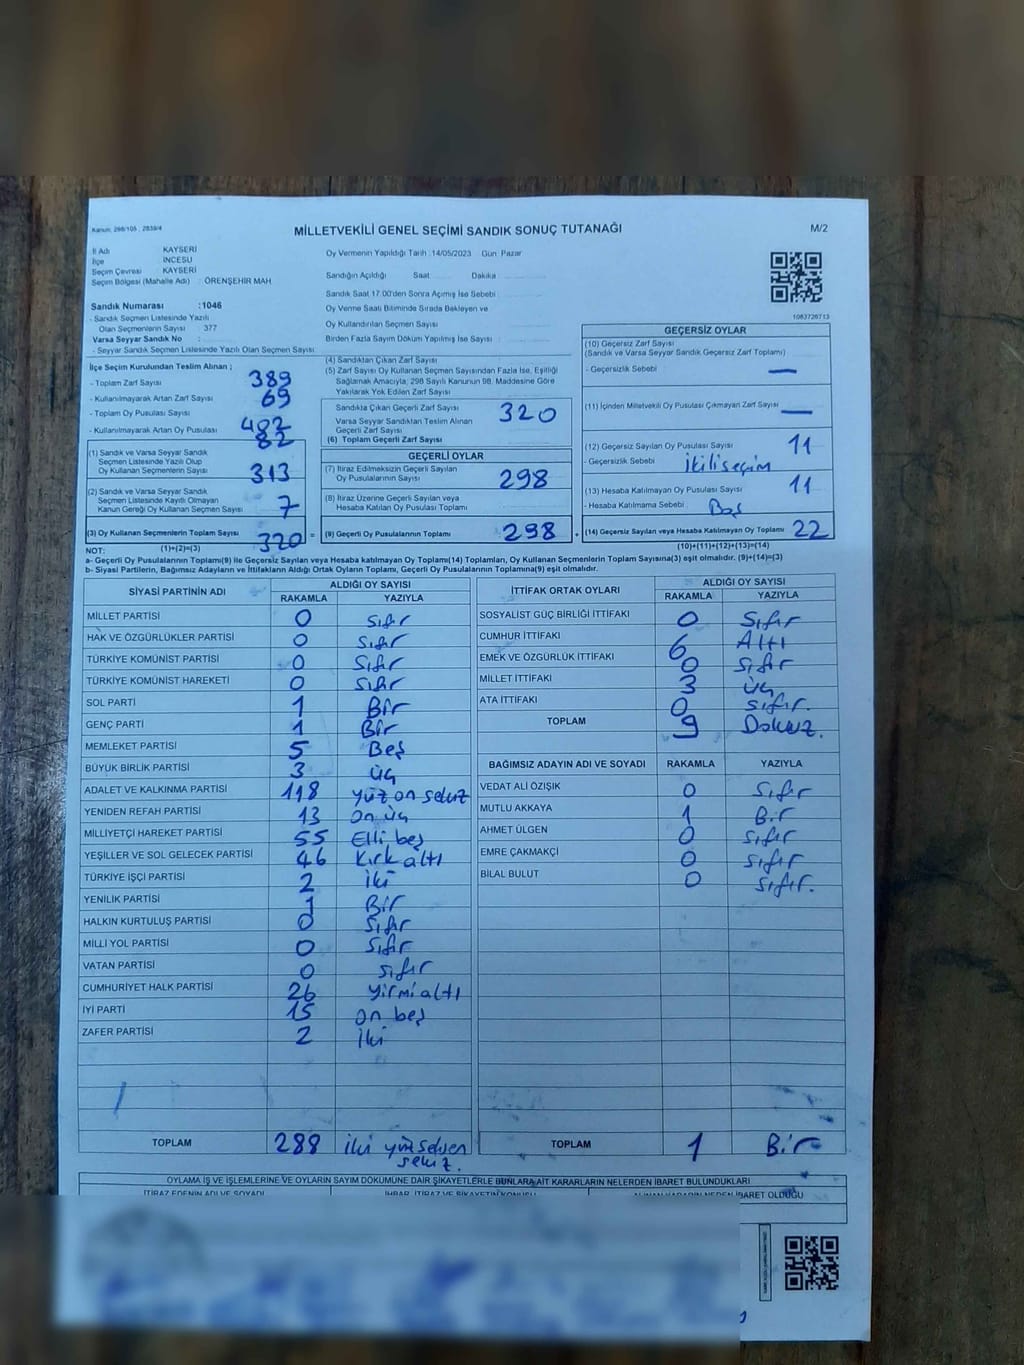 Kanun; 298/105 ; 2839/4
MİLLETVEKİLİ GENEL SEÇİMİ SANDIK SONUÇ TUTANAĞI
M/2
İl Adı KAYSERİ
İlçe İNCESU
Seçim Çevresi KAYSERİ
Seçim Bölgesi (Mahalle Adı) : ÖRENŞEHİR MAH
Sandık Numarası :1046
- Sandık Seçmen Listesinde Yazılı
Olan Seçmenlerin Sayısı : 377
Varsa Seyyar Sandık No :
- Seyyar Sandık Seçmen Listesinde Yazılı Olan Seçmen Sayısı
Oy Vermenin Yapıldığı Tarih :14/05/2023 Gün :Pazar
Sandığın Açıldığı Saat Dakika
Sandık Saat 17.00'den Sonra Açımış İse Sebebi :
Oy Verme Saati Bitiminde Sırada Bekleyen ve
Oy Kullandırılan Seçmen Sayısı
Birden Fazla Sayım Döküm Yapılmış İse Sayısı :
1083726713
İlçe Seçim Kurulundan Teslim Alınan ;
- Toplam Zarf Sayısı 389
- Kullanılmayarak Artan Zarf Sayısı 69
- Toplam Oy Pusulası Sayısı 402
- Kullanılmayarak Artan Oy Pusulası 82
(1) Sandık ve Varsa Seyyar Sandık
Seçmen Listesinde Yazılı Olup
Oy Kullanan Seçmenlerin Sayısı 313
(2) Sandık ve Varsa Seyyar Sandık
Seçmen Listesinde Kaydı Olmayan
Kanun Gereği Oy Kullanan Seçmen Sayısı 7
(3) Oy Kullanan Seçmenlerin Toplam Sayısı 320 =
(1)+(2)=(3)
(4) Sandıktan Çıkan Zarf Sayısı
(5) Zarf Sayısı Oy Kullanan Seçmen Sayısından Fazla İse, Eşitliği
Sağlamak Amacıyla; 298 Sayılı Kanunun 98. Maddesine Göre
Yakılarak Yok Edilen Zarf Sayısı
Sandıkta Çıkan Geçerli Zarf Sayısı 320
Varsa Seyyar Sandıktan Teslim Alınan
Geçerli Zarf Sayısı
(6) Toplam Geçerli Zarf Sayısı
GEÇERLİ OYLAR
(7) İtiraz Edilmeksizin Geçerli Sayılan
Oy Pusulasının Sayısı 298
(8) İtiraz Üzerine Geçerli Sayılan veya
Hesaba Katılan Oy Pusulası Toplamı
(9) Geçerli Oy Pusulalarının Toplamı 298 +
GEÇERSİZ OYLAR
(10) Geçersiz Zarf Sayısı
(Sandık ve Varsa Seyyar Sandık Geçersiz Zarf Toplamı)
- Geçersizlik Sebebi —
(11) İçinden Milletvekili Oy Pusulası Çıkmayan Zarf Sayısı —
(12) Geçersiz Sayılan Oy Pusulası Sayısı 11
- Geçersizlik Sebebi İkiliseçim
(13) Hesaba Katılmayan Oy Pusulası Sayısı 11
- Hesaba Katılmama Sebebi Boş
(14) Geçersiz Sayılan veya Hesaba Katılmayan Oy Toplamı 22
(10)+(11)+(12)+(13)=(14)
NOT:
a- Geçerli Oy Pusulalarının Toplamı(9) ile Geçersiz Sayılan veya Hesaba katılmayan Oy Toplamı(14) Toplamları, Oy Kullanan Seçmenlerin Toplam Sayısına(3) eşit olmalıdır. (9)+(14)=(3)
b- Siyasi Partilerin, Bağımsız Adayların ve İttifakların Aldığı Ortak Oyların Toplamı, Geçerli Oy Pusulalarının Toplamına(9) eşit olmalıdır.
SİYASİ PARTİNİN ADI ALDIĞI OY SAYISI
RAKAMLA YAZIYLA
MİLLET PARTİSİ 0 Sıfır
HAK VE ÖZGÜRLÜKLER PARTİSİ 0 Sıfır
TÜRKİYE KOMÜNİST PARTİSİ 0 Sıfır
TÜRKİYE KOMÜNİST HAREKETİ 0 Sıfır
SOL PARTİ 1 Bir
GENÇ PARTİ 1 Bir
MEMLEKET PARTİSİ 5 Beş
BÜYÜK BİRLİK PARTİSİ 3 üç
ADALET VE KALKINMA PARTİSİ 118 yüz on sekiz
YENİDEN REFAH PARTİSİ 13 on üç
MİLLİYETÇİ HAREKET PARTİSİ 55 Elli beş
YEŞİLLER VE SOL GELECEK PARTİSİ 46 Kırk altı
TÜRKİYE İŞÇİ PARTİSİ 2 iki
YENİLİK PARTİSİ 1 Bir
HALKIN KURTULUŞ PARTİSİ 0 Sıfır
MİLLİ YOL PARTİSİ 0 Sıfır
VATAN PARTİSİ 0 sıfır
CUMHURİYET HALK PARTİSİ 26 yirmi altı
İYİ PARTİ 15 on beş
ZAFER PARTİSİ 2 iki
TOPLAM 288 iki yüz seksen
sekiz.
İTTİFAK ORTAK OYLARI ALDIĞI OY SAYISI
RAKAMLA YAZIYLA
SOSYALİST GÜÇ BİRLİĞİ İTTİFAKI 0 Sıfır
CUMHUR İTTİFAKI 6 Altı
EMEK VE ÖZGÜRLÜK İTTİFAKI 0 sıfır
MİLLET İTTİFAKI 3 üç
ATA İTTİFAKI 0 sıfır.
TOPLAM 9 Dokuz.
BAĞIMSIZ ADAYIN ADI VE SOYADI RAKAMLA YAZIYLA
VEDAT ALİ ÖZIŞIK 0 Sıfır
MUTLU AKKAYA 1 Bir
AHMET ÜLGEN 0 sıfır
EMRE ÇAKMAKÇİ 0 sıfır
BİLAL BULUT 0 sıfır.
TOPLAM 1 Bir
OYLAMA İŞ VE İŞLEMLERİNE VE OYLARIN SAYIM DÖKÜMÜNE DAİR ŞİKAYETLERLE BUNLARA AİT KARARLARIN NELERDEN İBARET BULUNDUKLARI
İTİRAZ EDENİN ADI VE SOYADI İHBAR, İTİRAZ VE ŞİKAYETİN KONUSU ALINAN KARARIN NEDEN İBARET OLDUĞU